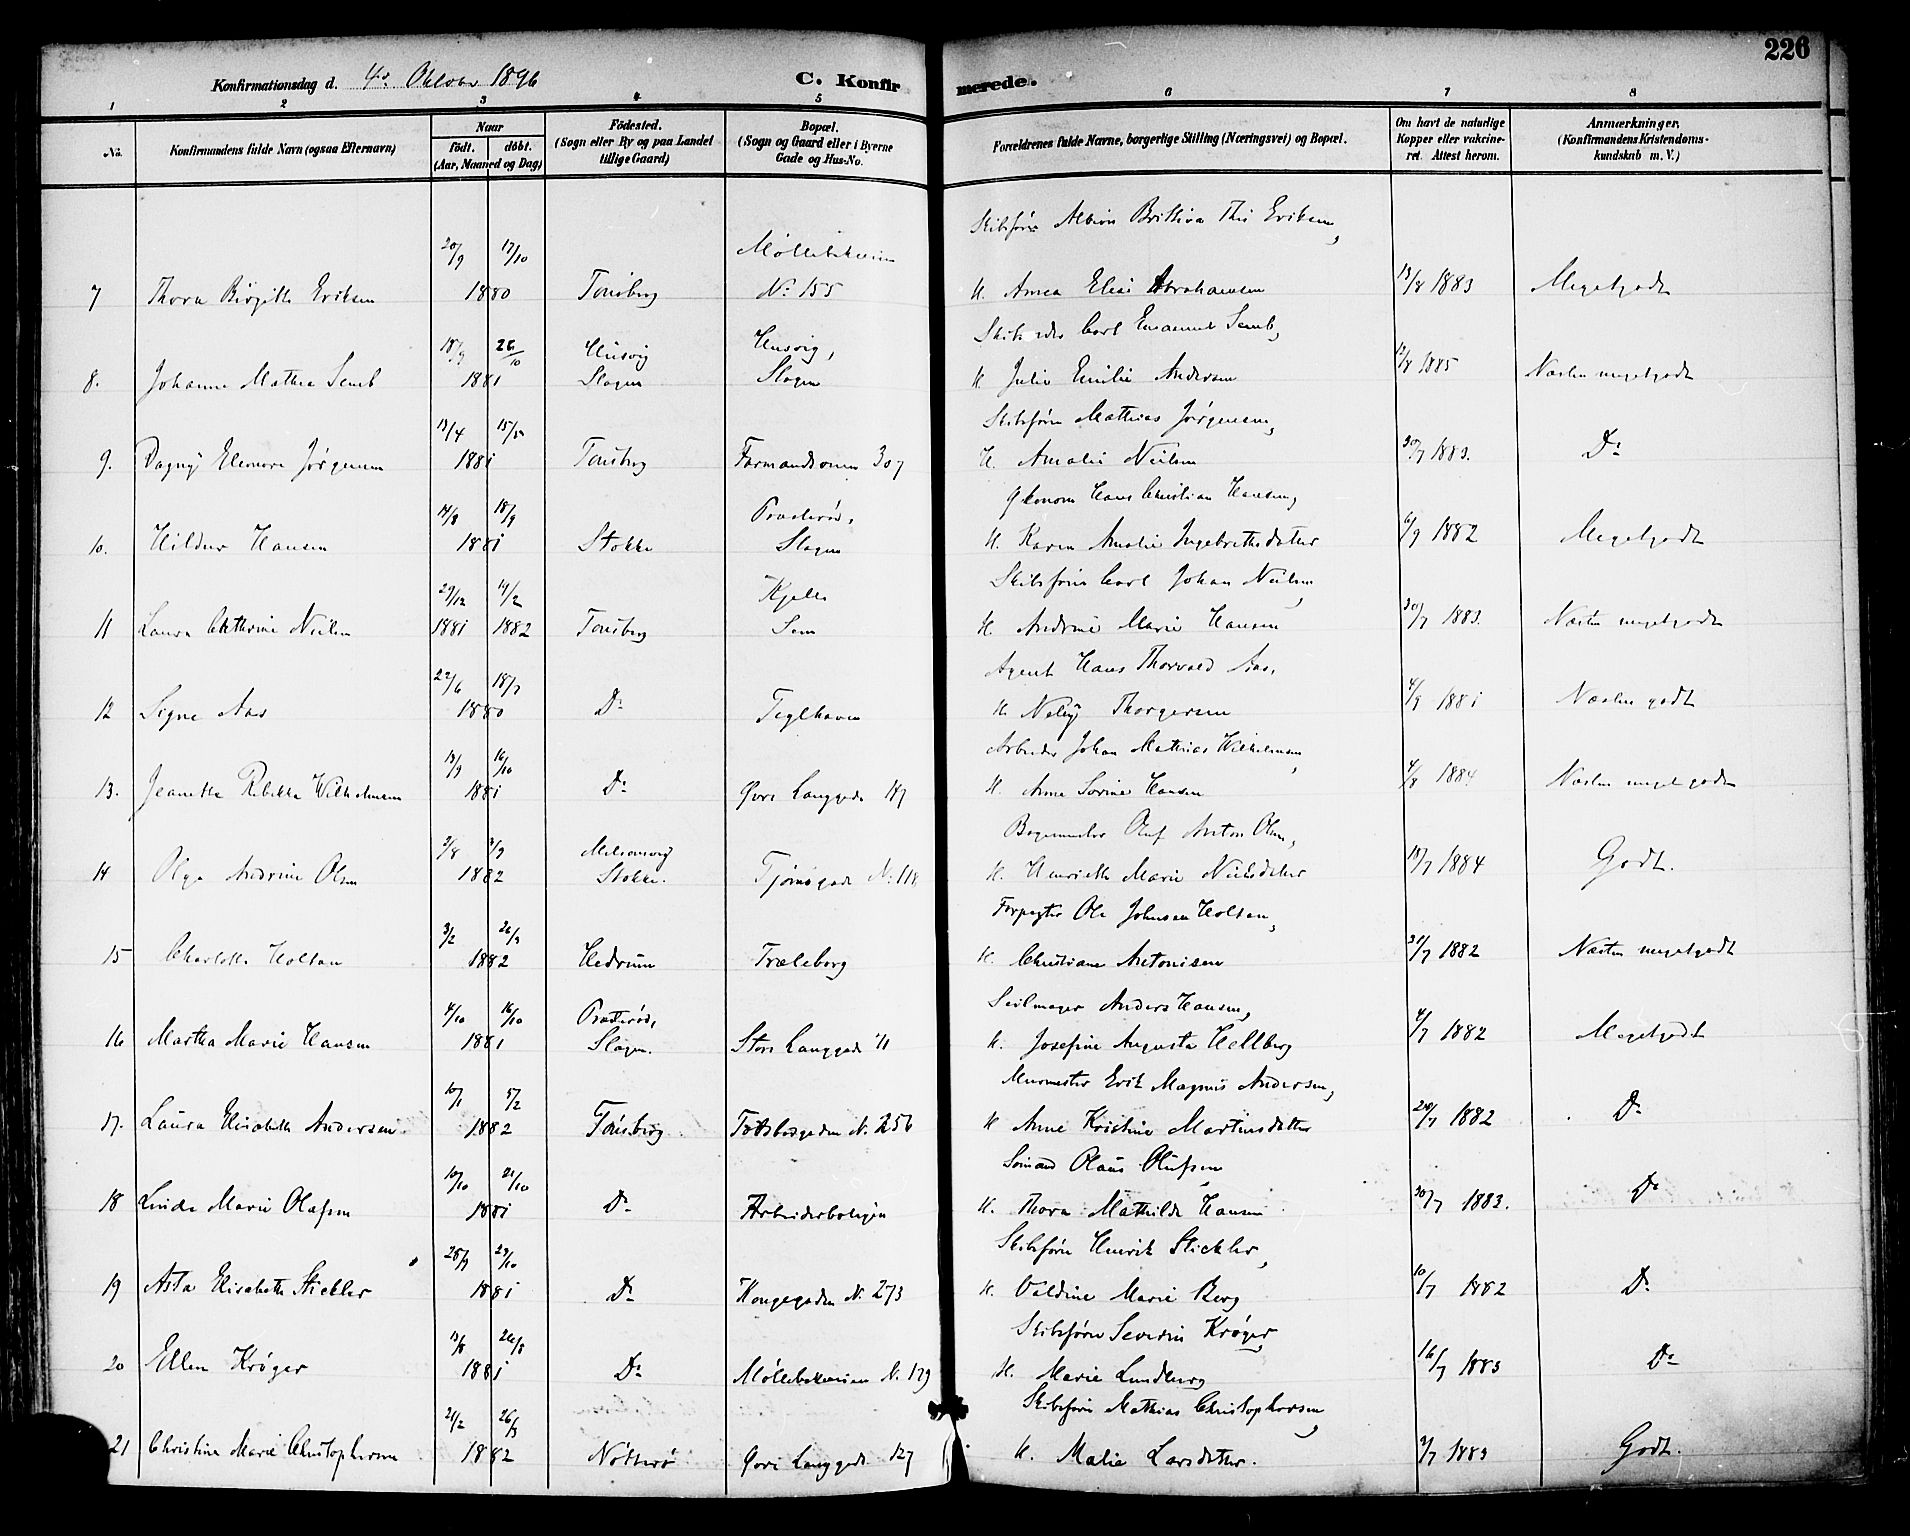 226
Konfirmationsdag d. 4de Oktober 1896
C. Konfirmerede.
1 2 3 4 5 6 7 8
No.
Konfirmandens fulde Navn (ogsaa Efternavn)
Naar
födt. döbt.
(Aar, Maaned og Dag)
Födested.
(Sogn eller By og paa Landet
tillige Gaard)
Bopæl.
(Sogn og Gaard eller i Byerne
Gade og Hus-No.
Forældrenes fulde Navne, borgerlige Stilling (Næringsvei) og Bopæl.
Om havt de naturlige
Kopper eller vakcine-
ret. Attest herom.
Anmærkninger.
(Konfirmandens Kristendoms-
kundskab m. V.)
Skibsfører Albion Eriksen,
20/9 17/10 Møllebakken
7 Thora Birgitte Eriksen 1880 Tønsberg No 155 H. Anna Elise Abrahamsen 13/8 1883 Megetgodt
Carl Emanuel Semb,
18/9 26/10 Husvig Husvig,
8. Johanne Mathea Semb 1881 Slagen Slagen H. Julie Emilie Andersen 12/8 1885 Næsten megetgodt
Skibsfører Mathias Jørgensen,
13/4 15/5
9. Dagny Eleonora Jørgensen 1881 Tønsberg 307 H. Amalie Nielsen 30/7 1883. Do
Økonom Hans Christian Hansen,
14/8 18/9 Præsterød,
10. Hildur Hansen 1881 Stokke Slagen H. Karen Amalie Ingebrethsdatter 6/9 1882 Megetgodt
Skibsfører Carl Johan Nielsen,
29/12 14/2 Kjelle
11 Laura Cathrine Nielsen 1881 1882 Tønsberg Sem H. Andrine Marie Hansen 30/7 1883. Næsten megetgodt
Agent Hans Thorvald Aas,
22/6 18/7
12 Signe Aas 1880 Do Teglhaven H. Nelly Thorgersen 4/9 1881 Næsten godt
Arbeider Johan Mathias Wilhelmsen,
13/9 16/10
13. Jeanette Rebekka Wilhelmsen 1881 Do Øvre Langgade H. Anne Sorine Hansen 4/8 1884. Næsten meget godt
Bagermester Oluf Anton Olsen,
2/8 3/9 Melsomvig
14 Olga Andrine Olsen 1882 Stokke. Tjømegade No 118, H. Henriette Marie Nielsdatter 18/7 1884 Godt.
Forpagter Ole Johnsen Holtan,
3/2 26/3
15 Charlotte Holtan 1882 Hedrum Træleborg H. Christiane Antonisen 31/7 1882 Næsten megetgodt
Seilmager Anders Hansen,
4/10 16/10 Præsterød,
16 Martha Marie Hansen 1881 Slagen. Store Langgade 71 H. Josefine Augusta Hellberg 4/7 1882 Megetgodt
Murmester Erik Magnus Andersen,
10/1 5/2
17. Laura Elisabeth Andersen 1882 Tønsberg No. 256 H. Anne Kristine Martinsdatter 20/7 1882 Do
Sømand Olaus Olufsen,
10/10 21/10
18 Linda Marie Olafsen 1881 Do Arbeiderboligen H. Thora Mathilde Hansen 30/7 1883. Do
Skibsfører Henrik Stickler,
28/9 29/10
19 Asta Elisabeth Stickler 1881 Do Kongegaden No. 273 H. Valdine Marie Berg 10/7 1882 Do
Skibsfører Severin Krøger,
13/8 26/8
20 Ellen Krøger 1881 Do Møllebakken No. 129 H. Marie Lundberg 16/7 1883 Do
Skibsfører Mathias Christophersen,
21/2 26/3
21 Christine Marie Christophersen 1882 Nøtterø Øvre Langgade 127 H. Malie Larsdatter. 2/7 1883 Godt.